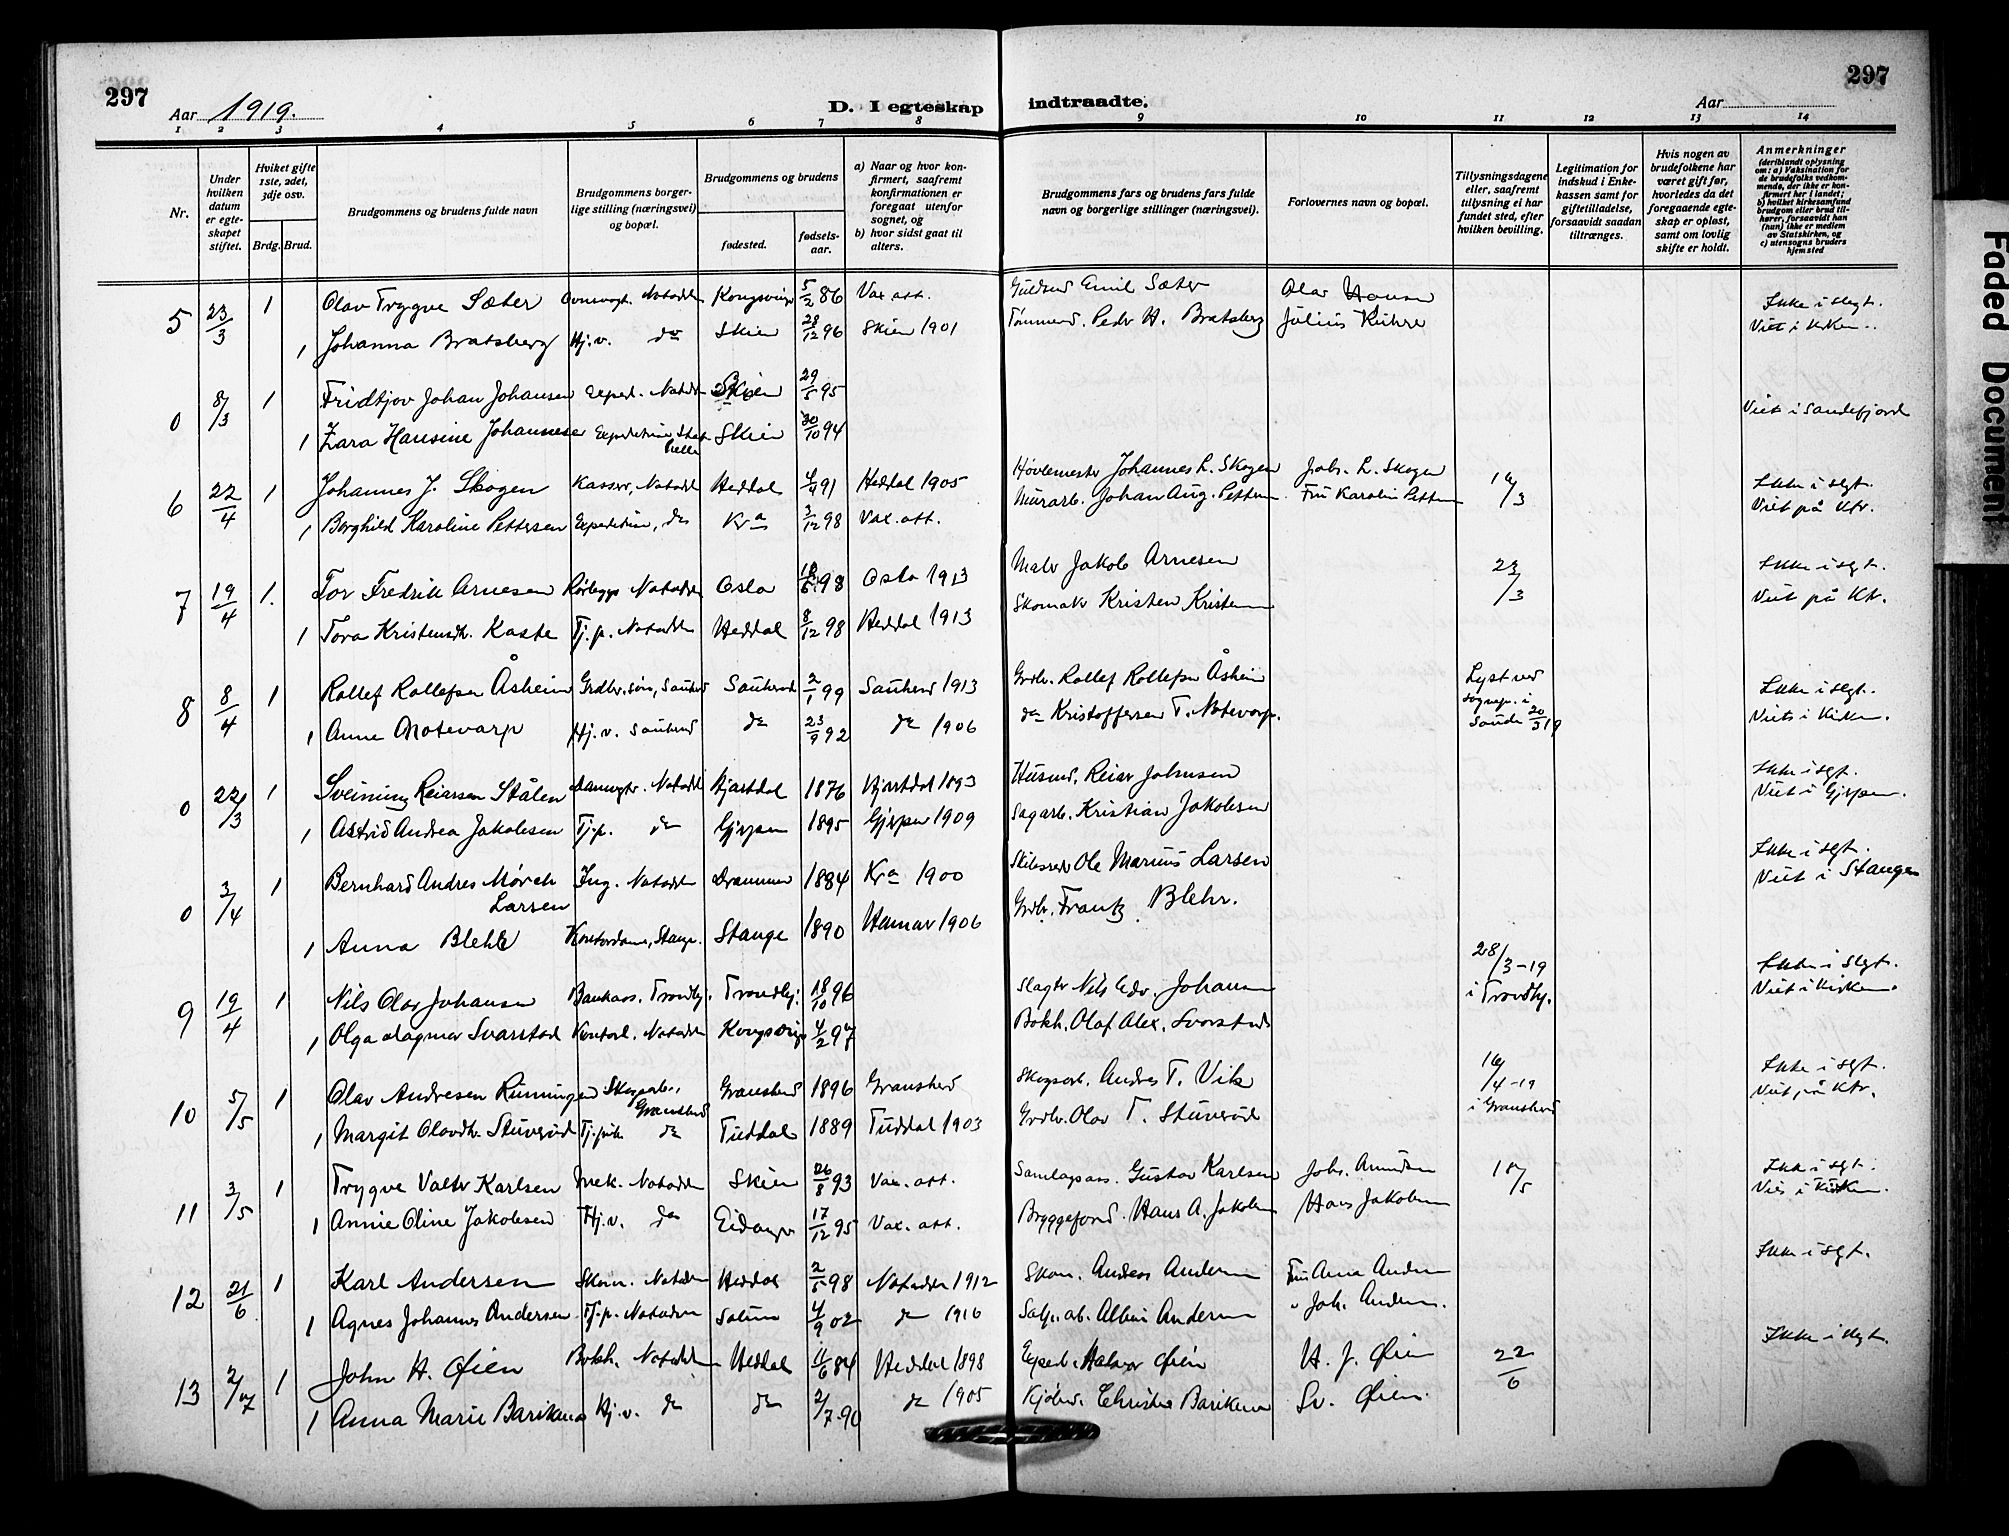 297
Aar 1919.
D. I egteskap indtraadte.
Aar
297
1 2 3 4 5 6 7 8 9 10 11 12 13 14
Nr.
Under hvilken datum er egteskapet stiftet.
Hviket gifte 1ste, 2det, 3dje osv.
Brdg. Brud.
Brudgommens og brudens fulde navn
Brudgommens borgerlige stilling (næringsvei) og bopæl.
Brudgommens og brudens
fødested.
fødselsaar.
a) Naar og hvor konfirmert, saafremt konfirmationen er foregaat utenfor sognet, og
b) hvor sidst gaat til alters.
Brudgommens fars og brudens fars fulde navn og borgerlige stillinger (næringsvei).
Forlovernes navn og bopæl.
Tillysningsdagene eller, saafremt tillysning ei har fundet sted, efter hvilken bevilling.
Legitimation for indskud i Enkekassen samt for giftetilladelse, forsaavidt saadan tiltrænges.
Hvis nogen av brudefolkene har været gift før, hvorledes da det foregaaende egteskap er opløst, samt om lovlig skifte er holdt.
Anmerkninger
(deriblandt oplysning om: a) Vaksination for de brudefolks vedkommende, der ikke er konfirmert her i landet; b) hvilket kirkesamfund brudgom eller brud tilhører, forsaavidt han (hun) ikke er medlem av Statskirken, og c) utensogns bruders hjemsted
5 23/3 1 Olav Trygve Sæter Notodden Kongsvinger 5/2 86 Vax att. Emil Sæter Olav Hansen Ikke i slegt.
1 Johanna Bratsberg Hj.v. do Skien 28/12 96 Skien 1901 Peder H. Bratsberg Julius Viet i Kirken.
0 8/3 1 Fridtjov Johan Johansen Exped. Notodden Skien 29/5 95 Viet i Sandefjord
1 Zara Hansine Johannesen Skien 30/10 94
6 22/4 1 Johannes J. Skogen Kasser, Notodden Heddal 4/4 91 Heddal 1905 Høvlemester Johannes L. Skogen Johs. L. Skogen 16/3 Ikke i slegt.
1 Borghild Karoline Pettersen do Kra 3/12 98 Vax. att. Murarb. Johan Aug. Pettersen Fru Karolin Pettersen Viet på Ktr.
7 19/4 1. Tor Fredrik Arnesen Rørlegger Notodden Oslo 98 Oslo 1913 Maler Jakob Arnesen 23/3 Ikke i slegt.
1 Tora Kristensdtr. Kaste Tj.p. Notodden Heddal 8/12 98 Heddal 1913 Skomaker Kristen Kristensen Viet på Ktr.
8 8/4 1 Rollef Rollefsen Åsheim Grdbr.søn, Sauherad Sauherad 2/1 99 Sauherad 1913 Grdbr. Rollef Rollefsen Åsheim Lyst ved sognep. i Saude 20/3 19 Ikke i slegt.
1 Anne Notevarp Hj.v. Sauherad do 23/9 92 do 1906 do Kristoffersen T. Notevarp. Viet i Kirken.
0 22/3 1 Sveinung Reiarsen Stålen Notodden Hjartdal 1876 Hjartdal 1893 Husmd. Reiar Johnsen Ikke i slegt.
1 Astrid Andrea Jakobsen Tj.p. do Gjerpen 1895 Gjerpen 1909 Sagarb. Kristian Jakobsen Viet i Gjerpen.
0 3/4 1 Bernhard Andres Mørch Larsen Ing. Notodden Drammen 1884 Kra 1900 Skibsreder Ole Marius Larsen Ikke i slegt.
1 Anna Blehr Kontordame, Stange. Stange 1890 Hamar 1906 Grdbr. Frantz Blehr. Viet i Stange
9 19/4 1 Nils Olav Johansen Bankass. Trondhj. Trondhj. 18/10 96 Slagter Nils Edv. Johansen 28/3-19 i Trondhj. Ikke i slegt.
1 Olga Dagmar Svarstad Notodden Kongsvinger 4/2 97 Bokh. Olaf Alex. Svarstad Viet i Kirken.
10 5/5 1 Olav Andresen Rinningen Skogsarb., Gransherd Gransherd 1896 Gransherd Skogsarb. Andres T. Vik 16/4-19 i Gransherd Ikke i slegt.
1 Margit Olavdtr. Stuverud do Tuddal 1889 Tuddal 1903 Grdbr. Olav T. Stuverud Viet på Ktr.
11 3/5 1 Trygve Valter Karlsen Mek. Notodden Skien 26/8 93 Vax. att. Gustav Karlsen Johs. Amundsen 18/5 Ikke i slegt.
1 Annie Oline Jakobsen Hj.v. do Eidanger 17/12 95 Vax. att. Bryggeform. Hans A. Jakobsen Hans Jakobsen Viet i Kirken.
12 21/6 1 Karl Andersen Skom. Notodden Heddal 2/5 98 Notodden 1912 Skom. Andreas Andersen Fru Anna Andersen Ikke i slegt.
1 Agnes Johannes Andersen Tj.p. Notodden Solum 4/9 02 do 1916 Albin Andersen " Joh. Andersen.
13 2/7 1 John H. Øien Bokh. Notodden Heddal 11/6 84 Heddal 1898 Halvor Øien H. J. Øien 22/6 Ikke i slegt.
1 Anna Marie Barikmo Hj.v. do do 2/7 90 do 1905 Kjøbm. Christen Sv. Øien.
Faded Document